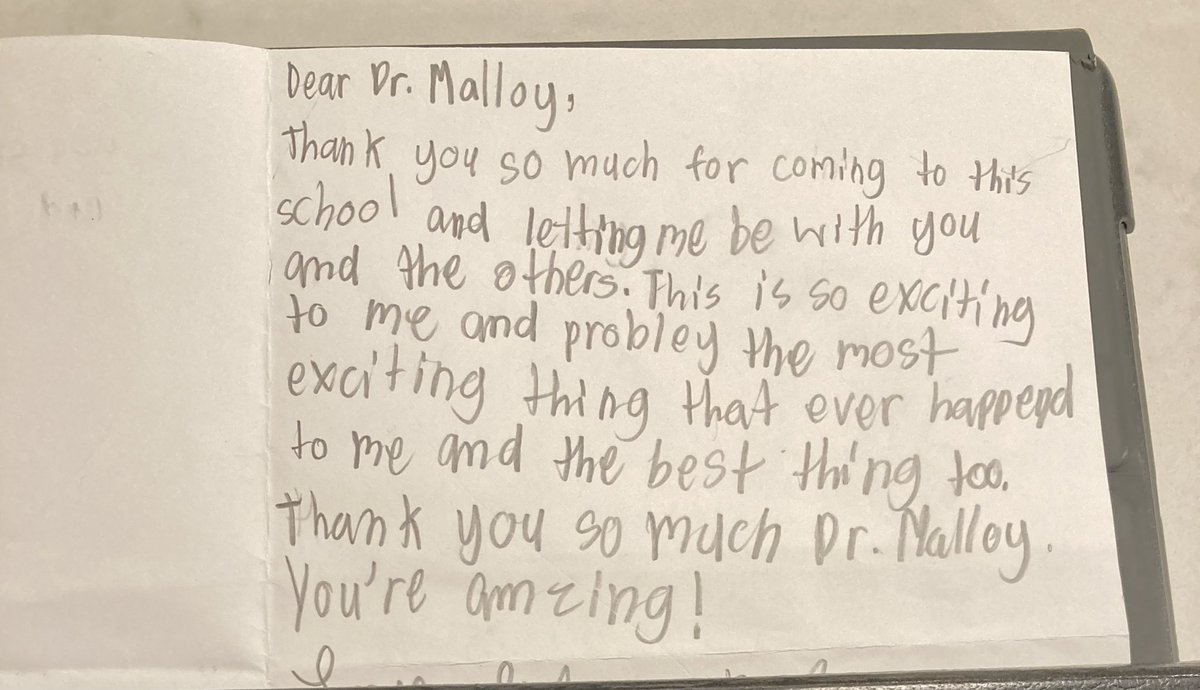 Dear Dr. Malloy,
Thank you so much for coming to this
school and letting me be with you
and the others. This is so exciting
to me and probley the most
exciting thing that ever happend
to me and the best thing too.
Thank you so much Dr. Malloy.
You're amzing!